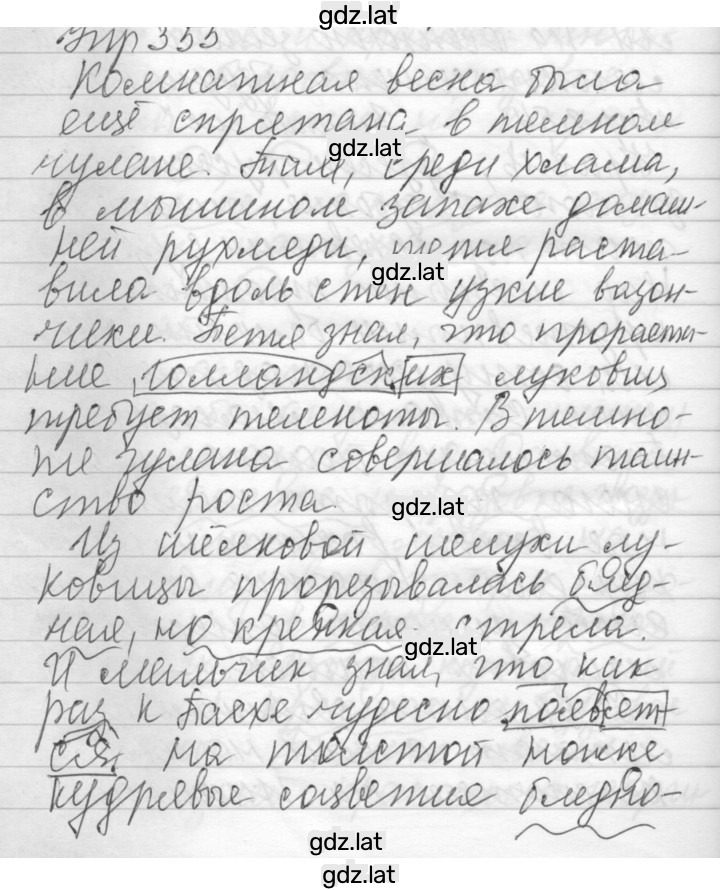 gdz.lat
Упр 355
Комнатная весна была
ещё спрятана в темном
gdz.lat
чулане. Там, среди хлама,
в мышином запахе домаш-
ней рухляди, тётя раста-
gdz.lat
вила вдоль стен узкие вазон-
чики. Петя знал, что прораста-
ние голландских луковиц
требует темноты. В темно-
те чулана совершалось таин-
ство роста.
gdz.lat
Из шёлковой шелухи лу-
ковицы прорезывалась блед-
ная, но крепкая стрела.
gdz.lat
И мальчик знал, что как
раз к Пасхе чудесно появят-
ся на толстой ножке
кудрявые соцветия бледно-
gdz.lat
gdz.lat